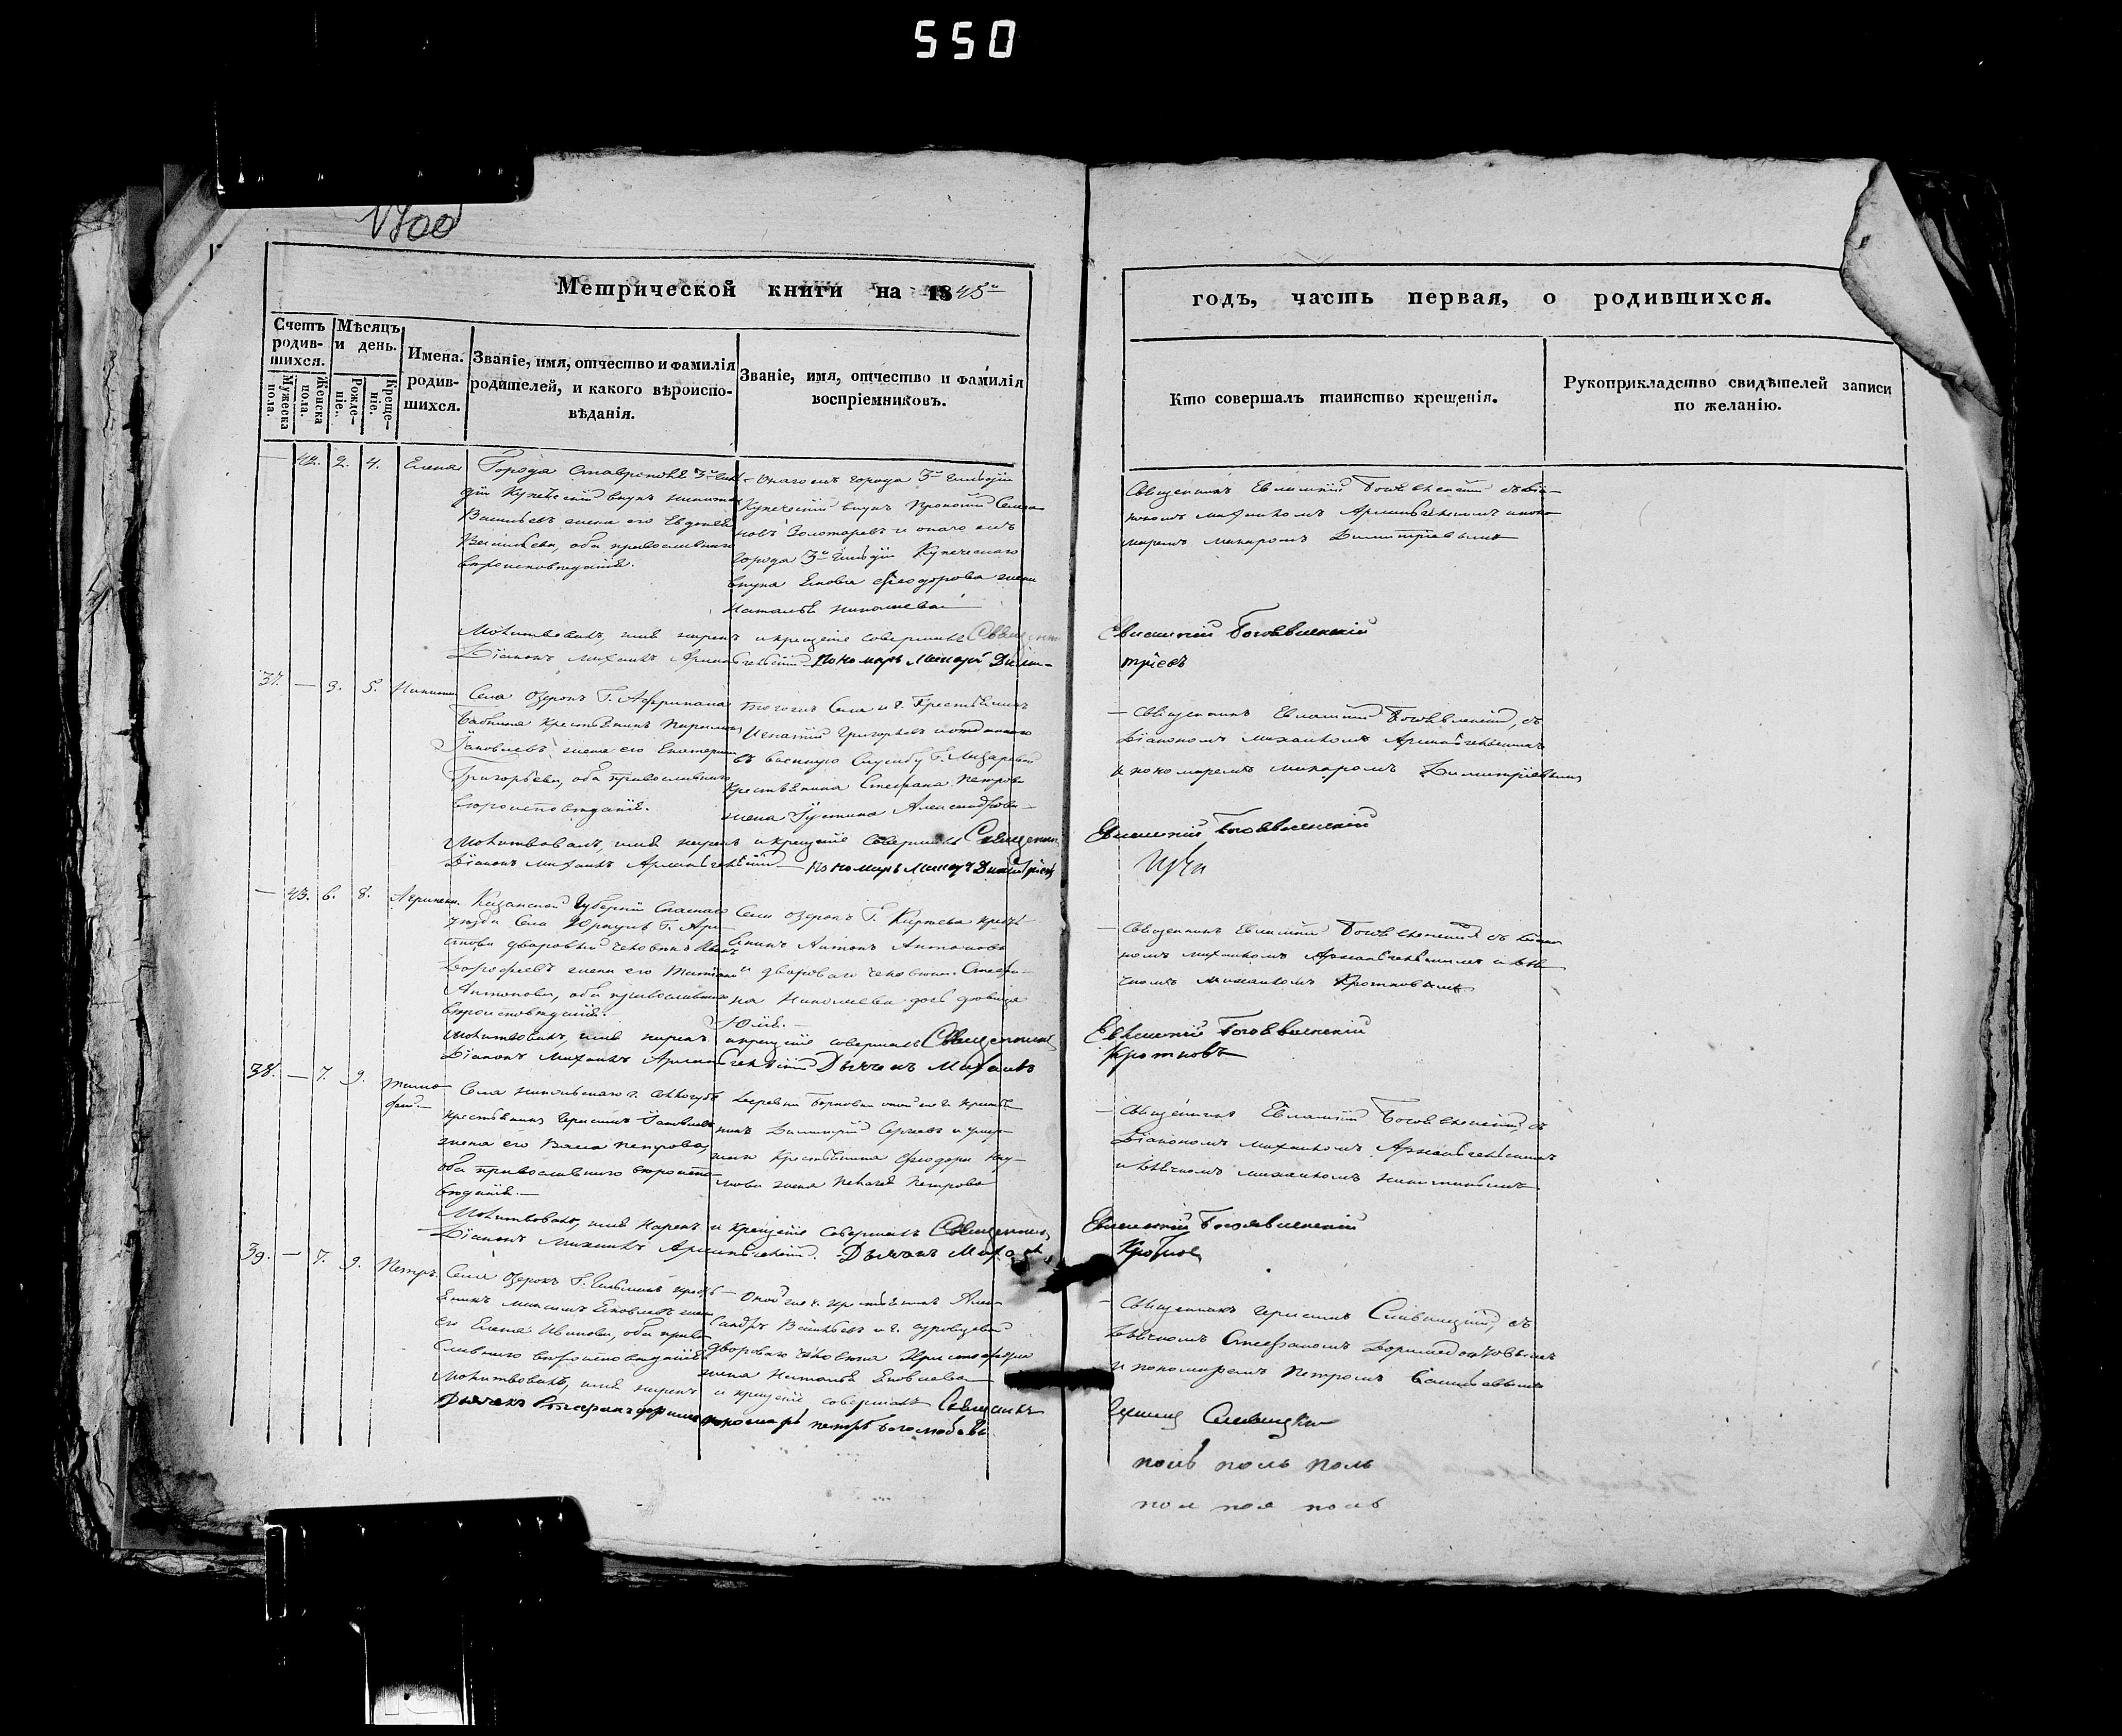 550
1800
Метрической книги на 1845й
годъ, часть первая, о родившихся.
Счетъ родив-шихся.
Мужеска пола.
Женска пола.
Мѣсяцъ и день.
Рожде-нiе.
Креще-нiе.
Имена. родив-шихся.
Званiе, имя, отчество и фамилiя
родителей, и какого вѣроиспо-
вѣданiя.
Званiе, имя, отчество и фамилiя
воспрiемниковъ.
Кто совершалъ таинство крещенiя.
Рукоприкладство свидѣтелей записи
по желанiю.
— 42. 2. 4. Елена
Города Ставрополя 3й гиль
дiи Купеческiй внукъ
Васильевъ жена его Евдокiя
Васильева, оба православнаго
вѣроисповѣданiя.
онагожъ города 3й гильдiи
Купеческiй внукъ Прокопiй Семе
новъ Золотаревъ и онаго жъ
города 3й гильдiи Купеческаго
внука Якова Феодорова жена
Наталья Николаева
Священникъ Евлампiй Боговленскiй съ дiа-
кономъ Михаиломъ Архангельскимъ и поно
маремъ Макаромъ Димитрiевымъ
Молитвовалъ, имя нарекъ и крещенiе совершалъ Священникъ
Евлампiй Богоявленскiй
Дiаконъ Михаилъ Архангельскiй Пономарь Макарiй Дими-
трiевъ
37. — 3. 5. Никита
Села Озерокъ Г.
Бабкина крестьянинъ
Яковлевъ жена его Екатерина
Григорьева, оба православнаго
вѣроисповѣданiя.
тогожъ Села и г. Крестьянинъ
Игнатiй Григорьевъ и отданнаго
въ военную Службу Г. Лазарева
крестьянина Стефана Петрова
жена Устина Александрова
— Священникъ Евлампiй Боговленскiй, съ
Дiакономъ Михаиломъ Архангельскимъ
и пономаремъ Макаромъ Димитрiевымъ
Молитвовалъ, имя нарекъ и крещенiе совершалъ Священникъ
Евлампiй Богоявленскiй
Дiаконъ Михаилъ Архангельскiй Пономарь Макаръ Димитрiевъ
— 43. 6. 8.
Казанской Губернiи Спаскаго
уѣзда Села Юркуль Г.
дворовый человѣкъ Иванъ
Дорофеевъ жена его Татiана
Антонова, оба православнаго
вѣроисповѣданiя.
Села Озерокъ Г. кресть
янинъ Антонъ Антоновъ
и двороваго человѣка Стефа-
на Николаева дочь дѣвица
Юлiя.
— Священникъ Евлампiй Боговленскiй съ дiако
номъ Михаиломъ Архангельскимъ и дья
чкомъ Михаиломъ Кротковымъ
Молитвовалъ имя нарекъ и крещенiе совершалъ Священникъ
Евлампiй Богоявленскiй
Дiаконъ Михаилъ Архангельскiй Дьячекъ Михаилъ
Кротковъ
38. — 7. 9. Тимо
фей.
Села Никольскаго г. Соллогуба
крестьянинъ Герасимъ Яковлевъ
жена его Васса Петрова,
оба православнаго вѣроиспо-
вѣданiя.
Деревни Борковки онойже г. кресть
нинъ Димитрiй Сергѣевъ и умер-
шаго крестьянина Феодора Нау-
мова жена Пелагея Петрова
— Священникъ Евлампiй Боговленскiй, съ
Дiакономъ Михаиломъ Архангельскимъ
и дьячкомъ Михаиломъ Никитинымъ
Молитвовалъ, имя нарекъ и крещенiе совершалъ Священникъ
Евлампiй Богоявленскiй
Дiаконъ Михаилъ Архангельскiй. Дьячекъ Михаилъ
Кротков
39. — 7. 9. Петръ.
Села Озерокъ Г. кресть
янинъ Максимъ Яковлевъ жена
его Елена Иванова, оба право
славнаго вѣроисповѣданiя
— Онойже г. крестьянинъ Алек
сандръ Васильевъ и г.
двороваго человѣка Христофора
жена Наталья Яковлева
— Священникъ Герасимъ Сливицкiй, съ
дьячкомъ Стефаномъ
и пономаремъ Петромъ
Молитвовалъ, имя нарекъ и крещенiе совершалъ Священикъ
Герасимъ Сливицкiй
Дьячекъ Стефанъ пономарь петръ боголюбовъ
поль поль поль
пол пол поль